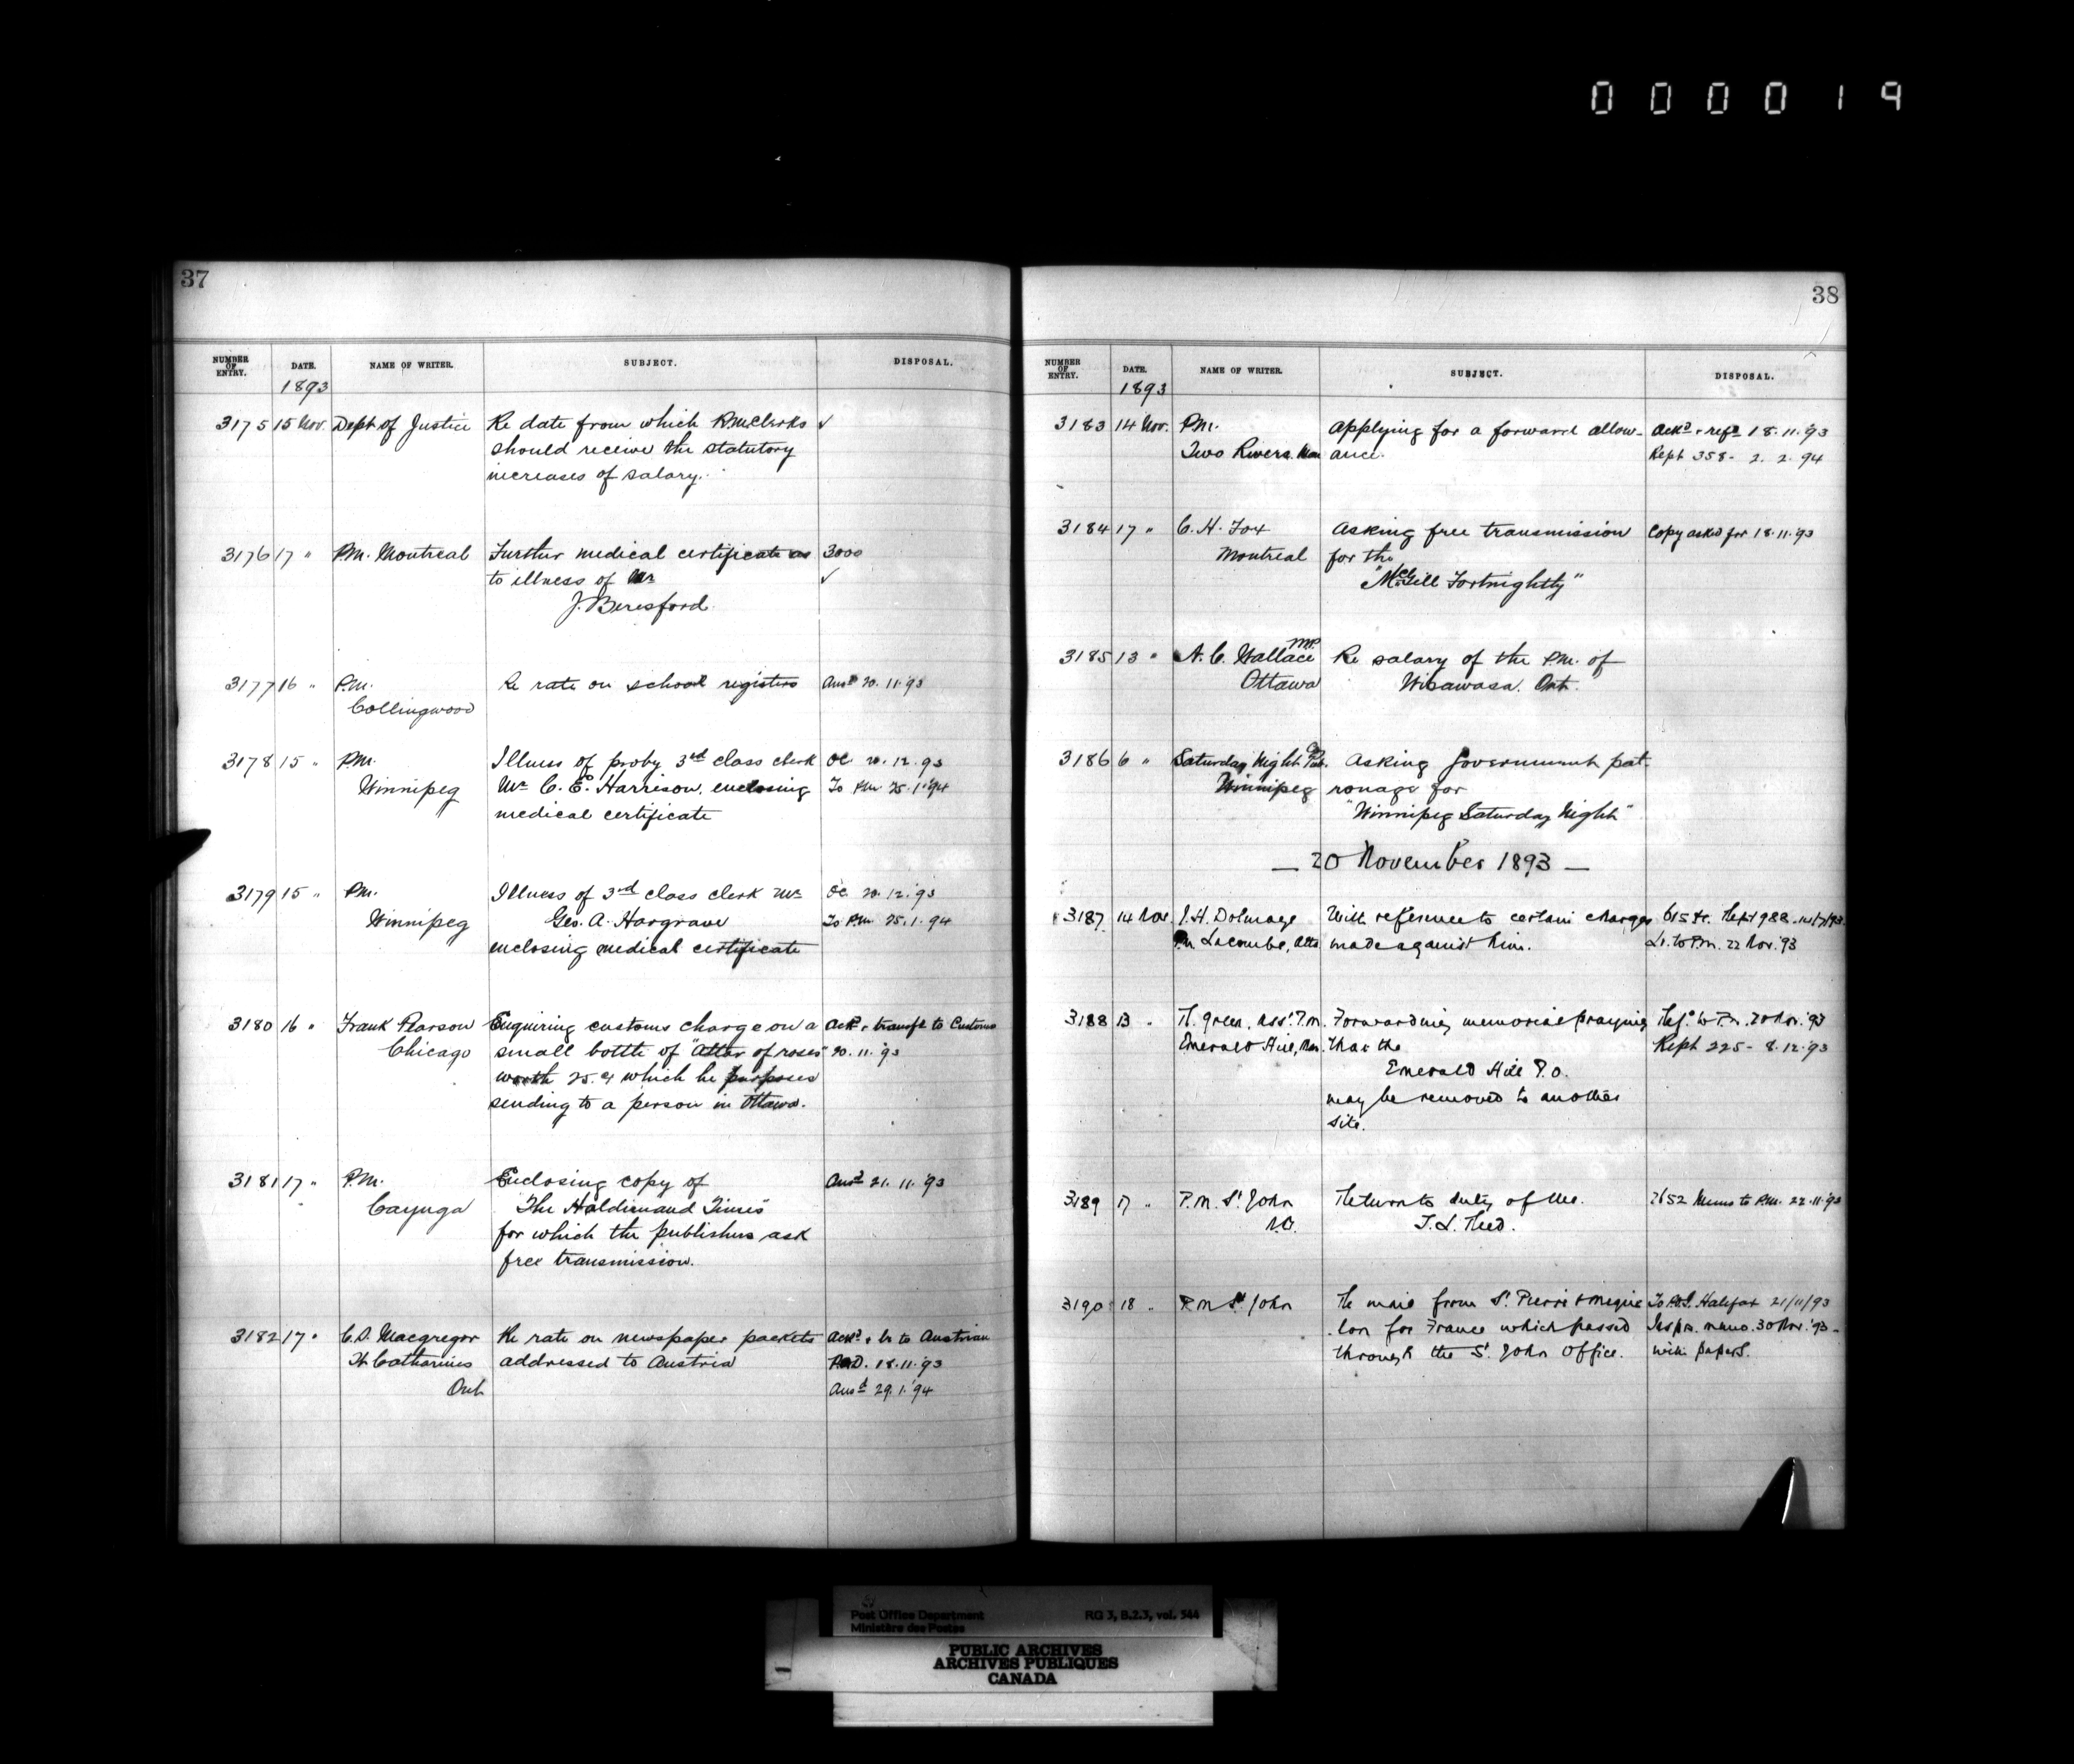 000019
37
NUMBER OF ENTRY. DATE. NAME OF WRITER. SUBJECT. DISPOSAL.
1893
3175 15 Nov. Dept of Justice Re date from which R.M. Clerks ✓
should receive the statutory
increases of salary.
3176 17 " P.M. Montreal Further medical certificate as 3000
to illness of Mr ✓
J. Beresford.
3177 16 " P.M. Re rate on school registers Ansd 20.11.'93
Collingwood
3178 15 " P.M. Illness of proby 3rd class clerk OC. 20.12.93
Winnipeg Mr C. E. Harrison, enclosing To P.M. 25.1.'94
medical certificate
3179 15 " P.M. Illness of 3rd class clerk Mr OC. 20.12.'93
Winnipeg Geo. A. Hargrave To P.M. 25.1.94
enclosing medical certificate
3180 16 " Frank Pearson Enquiring customs charge on a Ackd & transfd to Customs
Chicago small bottle of "Attar of roses" 20.11.'93
worth 25.c which he purposes
sending to a person in Ottawa.
3181 17 " P.M. Enclosing copy of Ansd 21.11.'93
Cayuga "The Haldimand Times"
for which the publishers ask
free transmission.
3182 17 " C.S. Macgregor Re rate on newspaper packets Ackd & to Austrian
St Catharines addressed to Austria 18.11.'93
Ont Ansd 29.1.'94
38
NUMBER OF ENTRY. DATE. NAME OF WRITER. SUBJECT. DISPOSAL.
1893
3183 14 Nov. P.M. Applying for a forward allow- Ackd & refd 18.11.'93
Two Rivers. Man ance. Rept 358 - 2.2.94
3184 17 " C. H. Fox Asking free transmission Copy asked for 18.11.'93
Montreal for the
"McGill Fortnightly"
3185 13 " N. C. Wallace M.P. Re salary of the P.M. of
Ottawa Wisawasa. Ont.
3186 6 " Saturday Night Pub. Co Asking Government pat-
Winnipeg ronage for
"Winnipeg Saturday Night"
— 20 November 1893 —
3187 14 Nov. J. H. Dolmage With reference to certain charges 615 Rept 988
P.M. Lacombe, Alta made against him. Lr. to P.M. 22 Nov. '93
3188 13 " R. Green, Asst P.M. Forwarding memorial praying Refd to P.M. 20 Nov. '93
Emerald Hill, Man. that the Rept 225 - 8.12.93
Emerald Hill P.O.
may be removed to another
site.
3189 17 " P.M. St John Return to duty of Mr. 2652 Memo to P.M. 22.11.'93
N.B. T. L. Reed.
3190 18 " P.M. St John Re mail from St Pierre & Mique- To P.O.I. Halifax 21/11/93
lon for France which passed Inspr. memo. 30 Nov. '93 -
through the St John Office. with papers.
Post Office Department RG 3, B.2.3, vol. 544
Ministère des Postes
PUBLIC ARCHIVES
ARCHIVES PUBLIQUES
CANADA